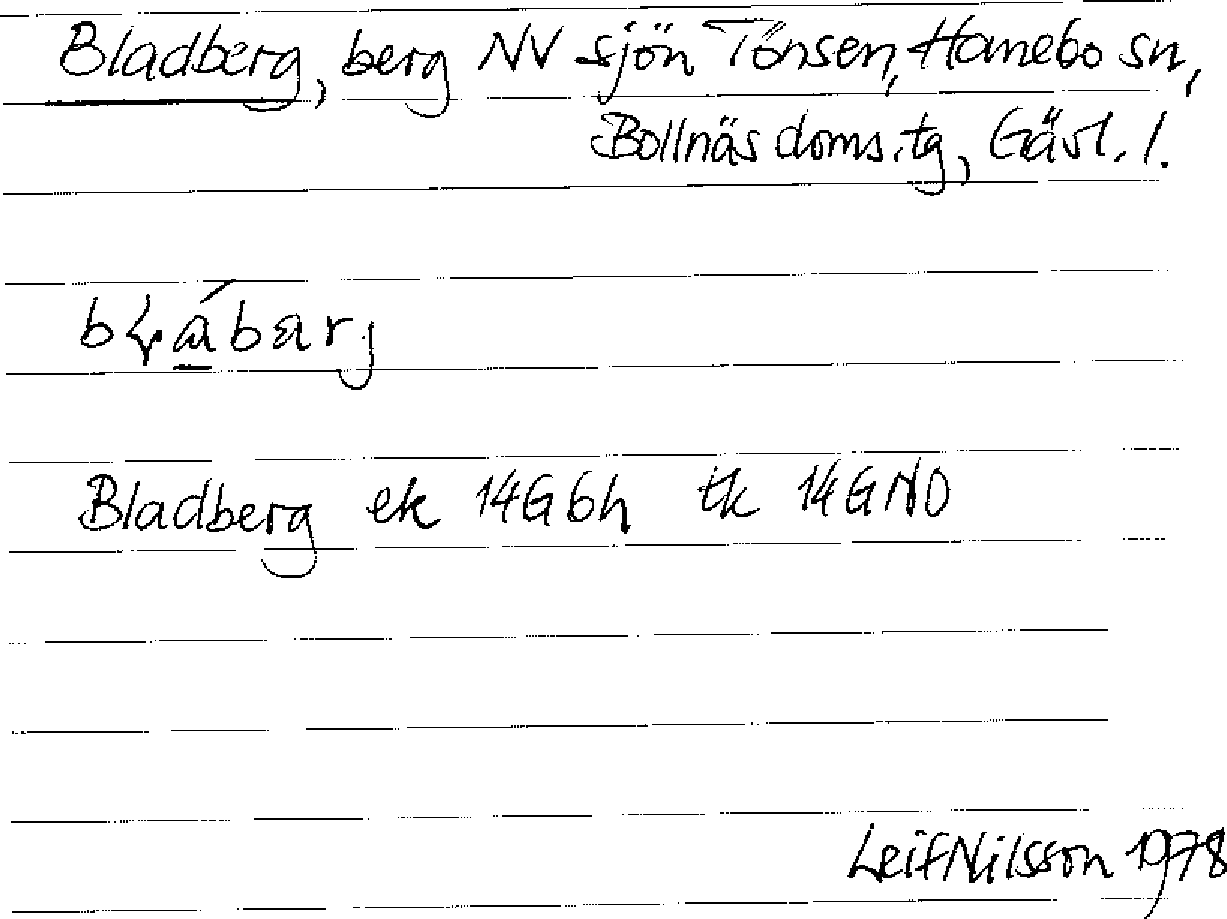 Bladberg, berg NV sjön Tönsen, Hanebo sn,
Bollnäs doms.tg, Gävl. l.
bɽá̲barj
Bladberg ek 14G6h tk 14GNO
Leif Nilsson 1978